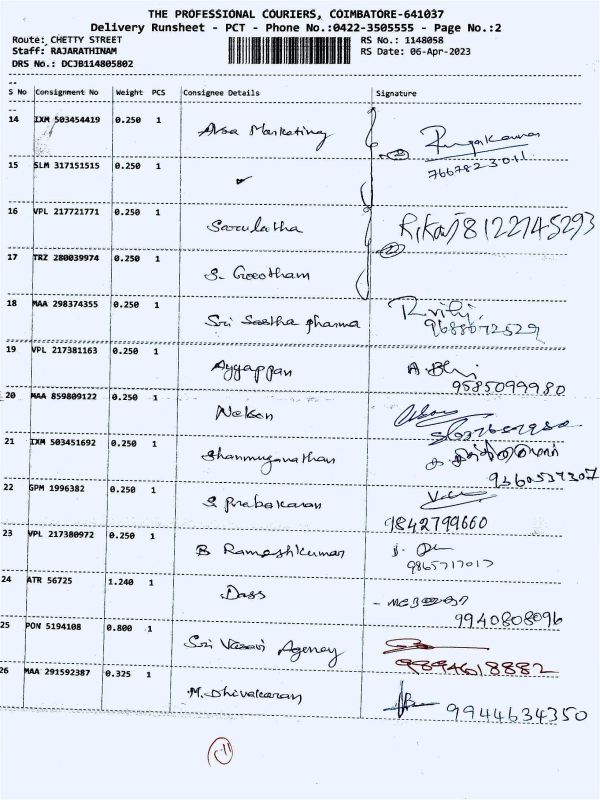 THE PROFESSIONAL COURIERS, COIMBATORE-641037
Delivery Runsheet - PCT - Phone No.:0422-3505555 - Page No.:2
Route: CHETTY STREET RS No.: 1148058
Staff: RAJARATHINAM RS Date: 06-Apr-2023
DRS No.: DCJB114805802
S No Consignment No Weight PCS Consignee Details Signature
14 IXM 503454419 0.250 1 Marketing
7667823011
15 SLM 317151515 0.250 1
16 VPL 217721771 0.250 1 Sarulatha 8122745293
17 TRZ 280039974 0.250 1 S. Gowtham
18 MAA 298374355 0.250 1 Sri Sastha pharma
19 VPL 217381163 0.250 1 Ayyappan
9585099980
20 MAA 859809122 0.250 1 Nelson
21 IXM 503451692 0.250 1 Shanmuganathan
22 GPM 1996382 0.250 1 S Prabakaran
9842799660
23 VPL 217380972 0.250 1 B Rameshkumar
9865717017
24 ATR 56725 1.240 1 Dass
9940808096
25 PON 5194108 0.800 1 Sri Vasavi Agency
9894618882
26 MAA 291592387 0.325 1 M. Dhivakaran
9944634350